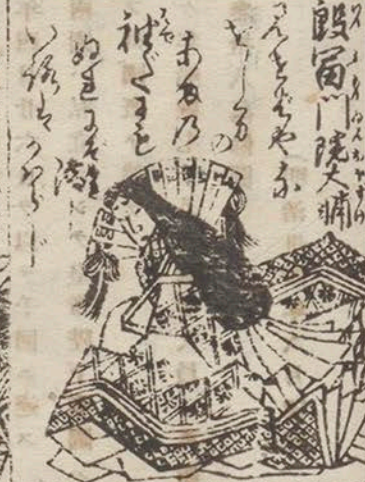 殷富門院大輔
見せばやな
をじまの
あまの
袖だにも
ぬれにぞ濡し
いろはかはらず